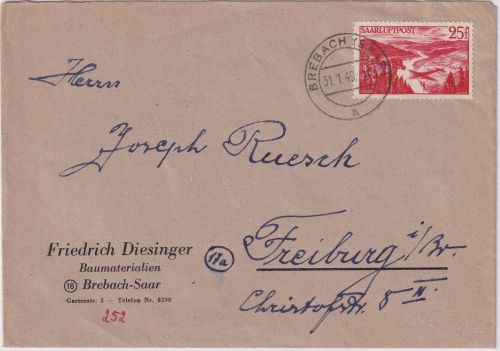 SAARLUFTPOST 25f
BREBACH (SAAR)
31.1.49
a
Herrn
Joseph Ruesch
17a Freiburg i/Br.
Christofstr. 8 II.
Friedrich Diesinger
Baumaterialien
18 Brebach-Saar
Gartenstr. 3 — Telefon Nr. 8298
252